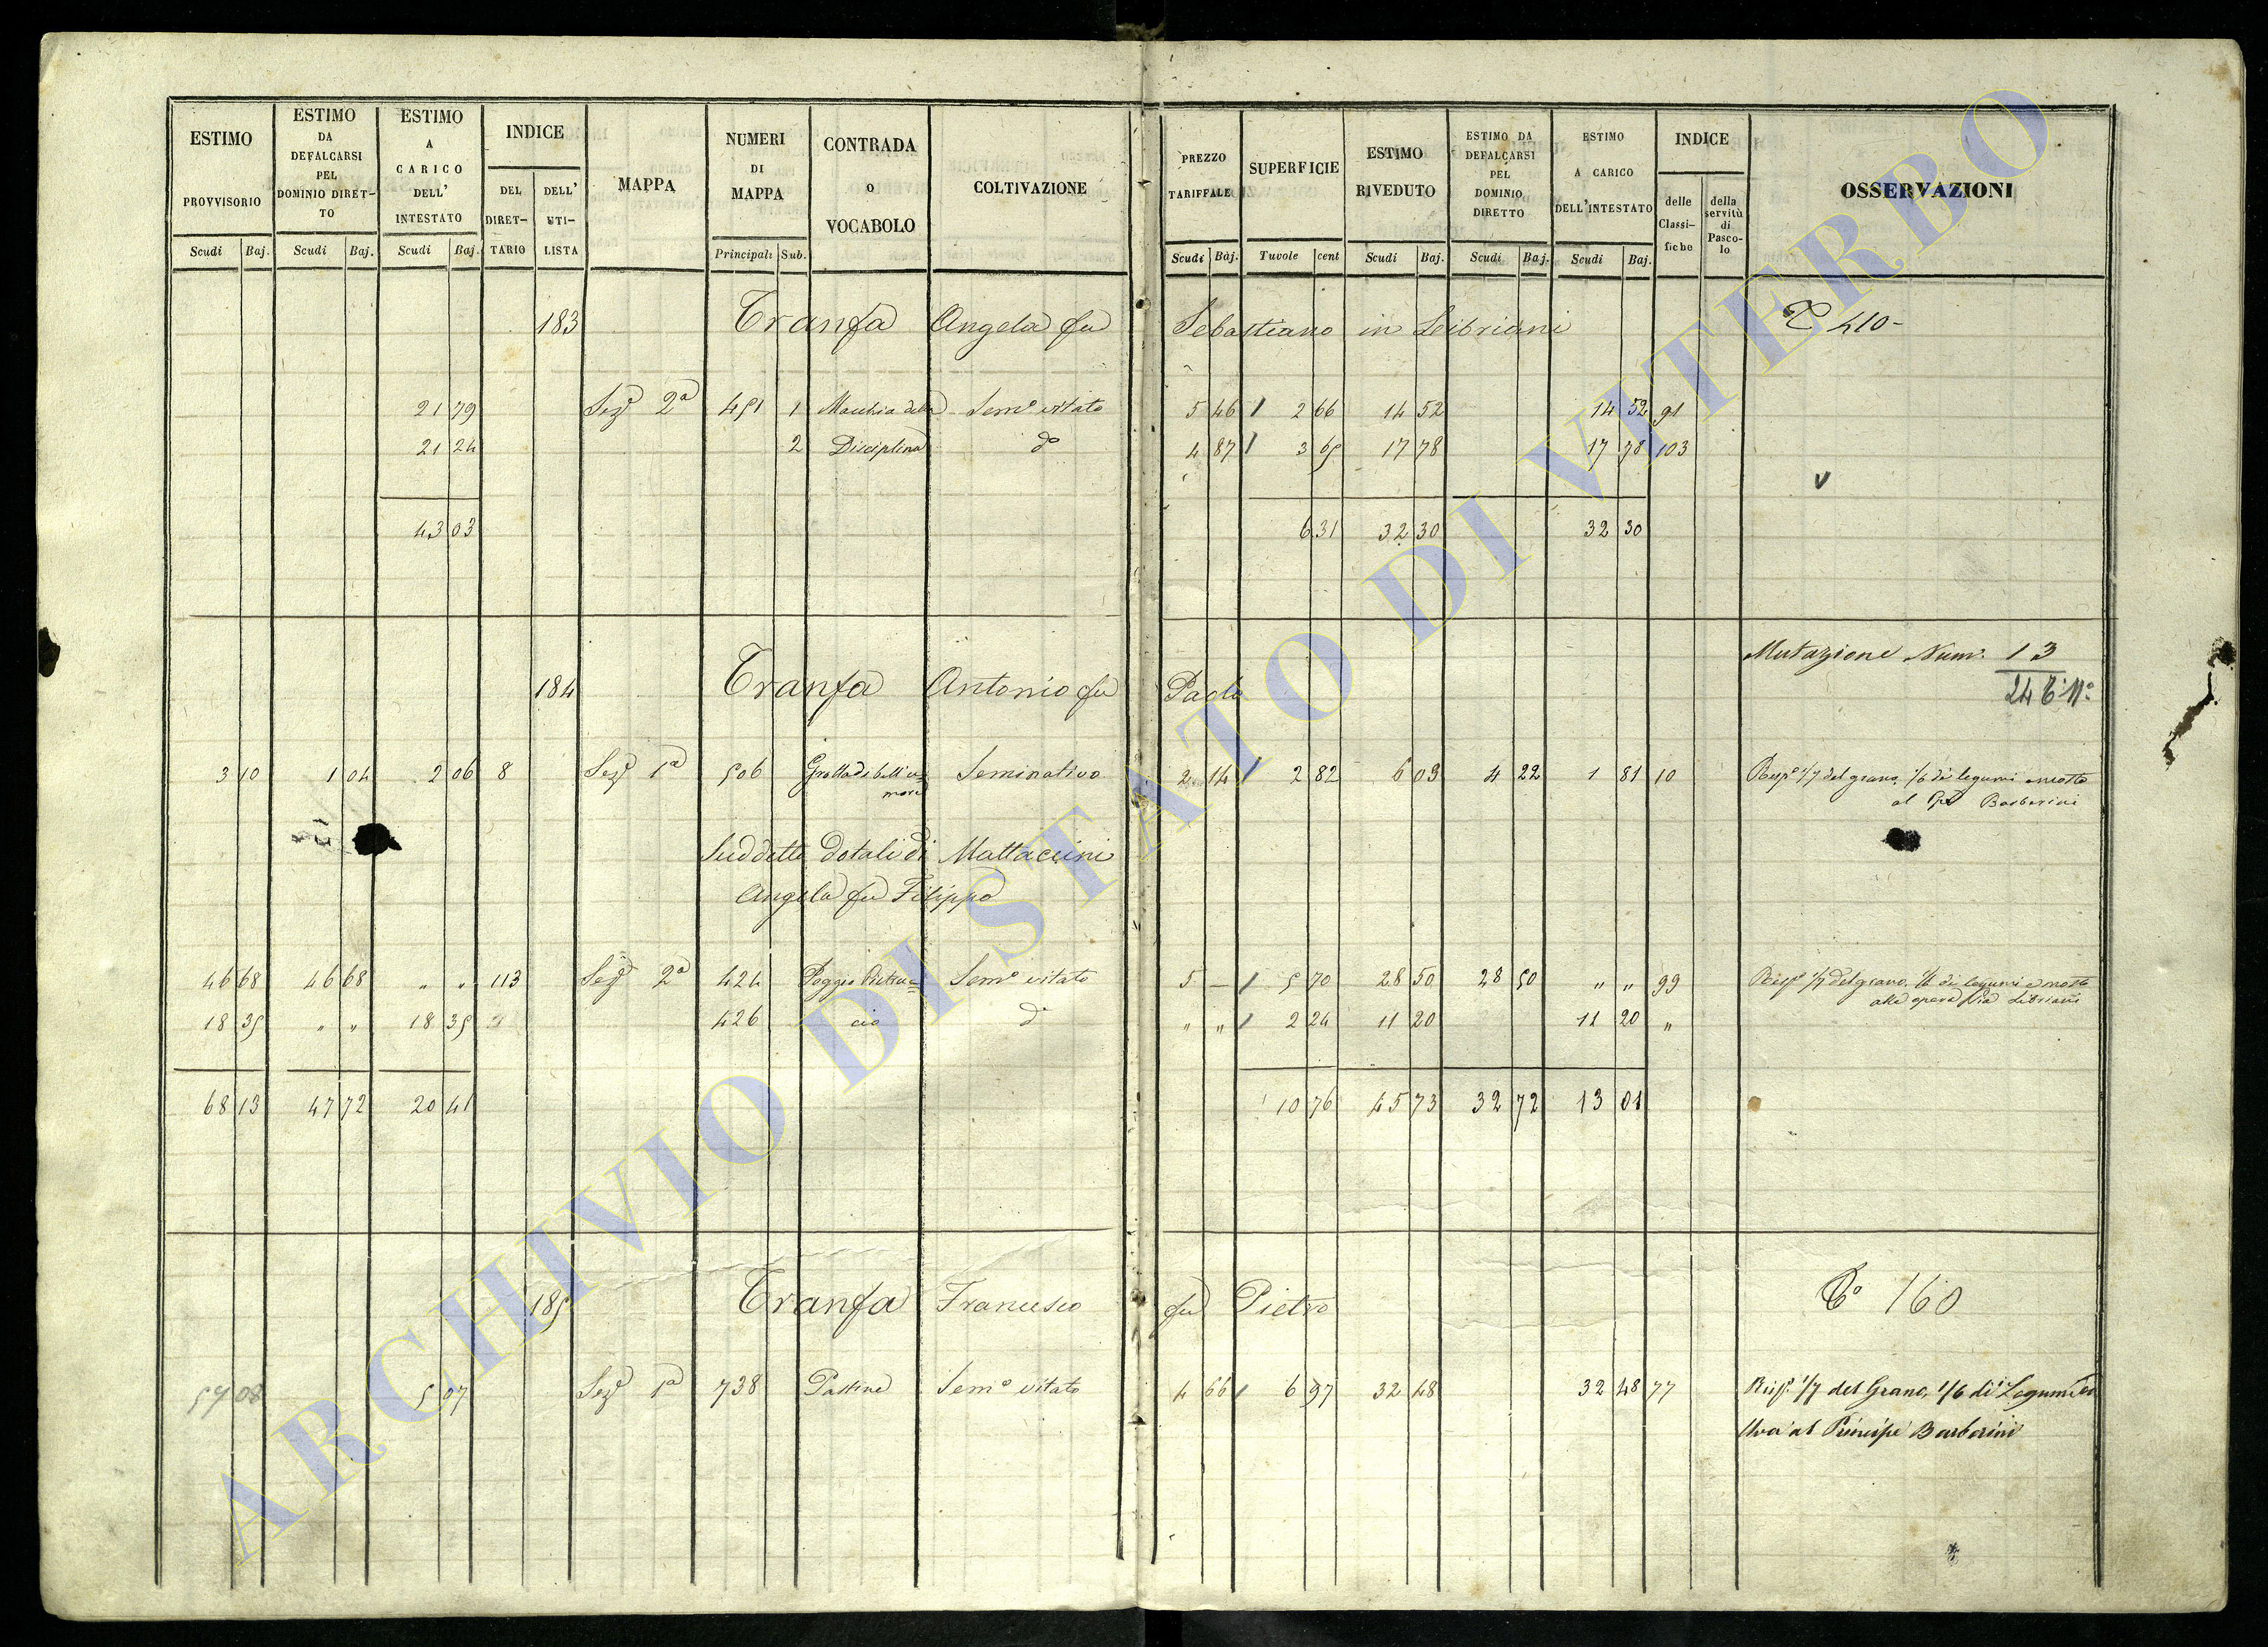 ESTIMO PROVVISORIO Scudi Baj.
ESTIMO DA DEFALCARSI PEL DOMINIO DIRET- TO Scudi Baj.
ESTIMO A CARICO DELL' INTESTATO Scudi Baj.
INDICE DEL DIRET- TARIO DELL' UTI- LISTA
MAPPA
NUMERI DI MAPPA Principali Sub.
CONTRADA O VOCABOLO
COLTIVAZIONE
PREZZO TARIFFALE Scudi Baj.
SUPERFICIE Tavole cent
ESTIMO RIVEDUTO Scudi Baj.
ESTIMO DA DEFALCARSI PEL DOMINIO DIRETTO Scudi Baj.
ESTIMO A CARICO DELL'INTESTATO Scudi Baj.
INDICE delle Classi- fiche della servitù di Pasco- lo
OSSERVAZIONI
183 Tranfa Angela fu Sebastiano in Leibriani 410-
21 79 Sezᵉ 2ª 451 1 Macchia della Semº vitato 5 46 2 66 14 52 14 52 91
21 24 2 Disciplina dº 4 87 3 65 17 78 17 78 103
43 03 6 31 32 30 32 30
Mutazione Num. 13
184 Tranfa Antonio fu Paolo 24
3 10 1 04 2 06 8 Sezᵉ 1ª 506 Grotta di bell'u= Seminativo 2 14 2 82 6 03 4 22 1 81 10 Rispᵉ 1/7 del grano, 1/6 di legumi e mosto
more al Barberini
Suddetto dotali di Mattaccini
Angela fu Filippo
46 68 46 68 " " 113 Sezᵉ 2ª 424 Poggio Pietruc= Semº vitato 5 — 5 70 28 50 28 50 " " 99 Rispᵉ 1/7 del grano, 1/6 di legumi e mosto
alla opera Pia Libriani
18 35 " " 18 35 426 cio dº " " 2 24 11 20 11 20 "
68 13 47 72 20 41 10 76 45 73 32 72 13 01
185 Tranfa Francesco fu Pietro 160
57 08 5 07 Sezᵉ 1ª 738 Pastine Semº vitato 4 66 6 97 32 48 32 48 77 Risp. 1/7 del Grano, 1/6 di Legumi ed
Uva al Principe Barberini
ARCHIVIO DI STATO DI VITERBO